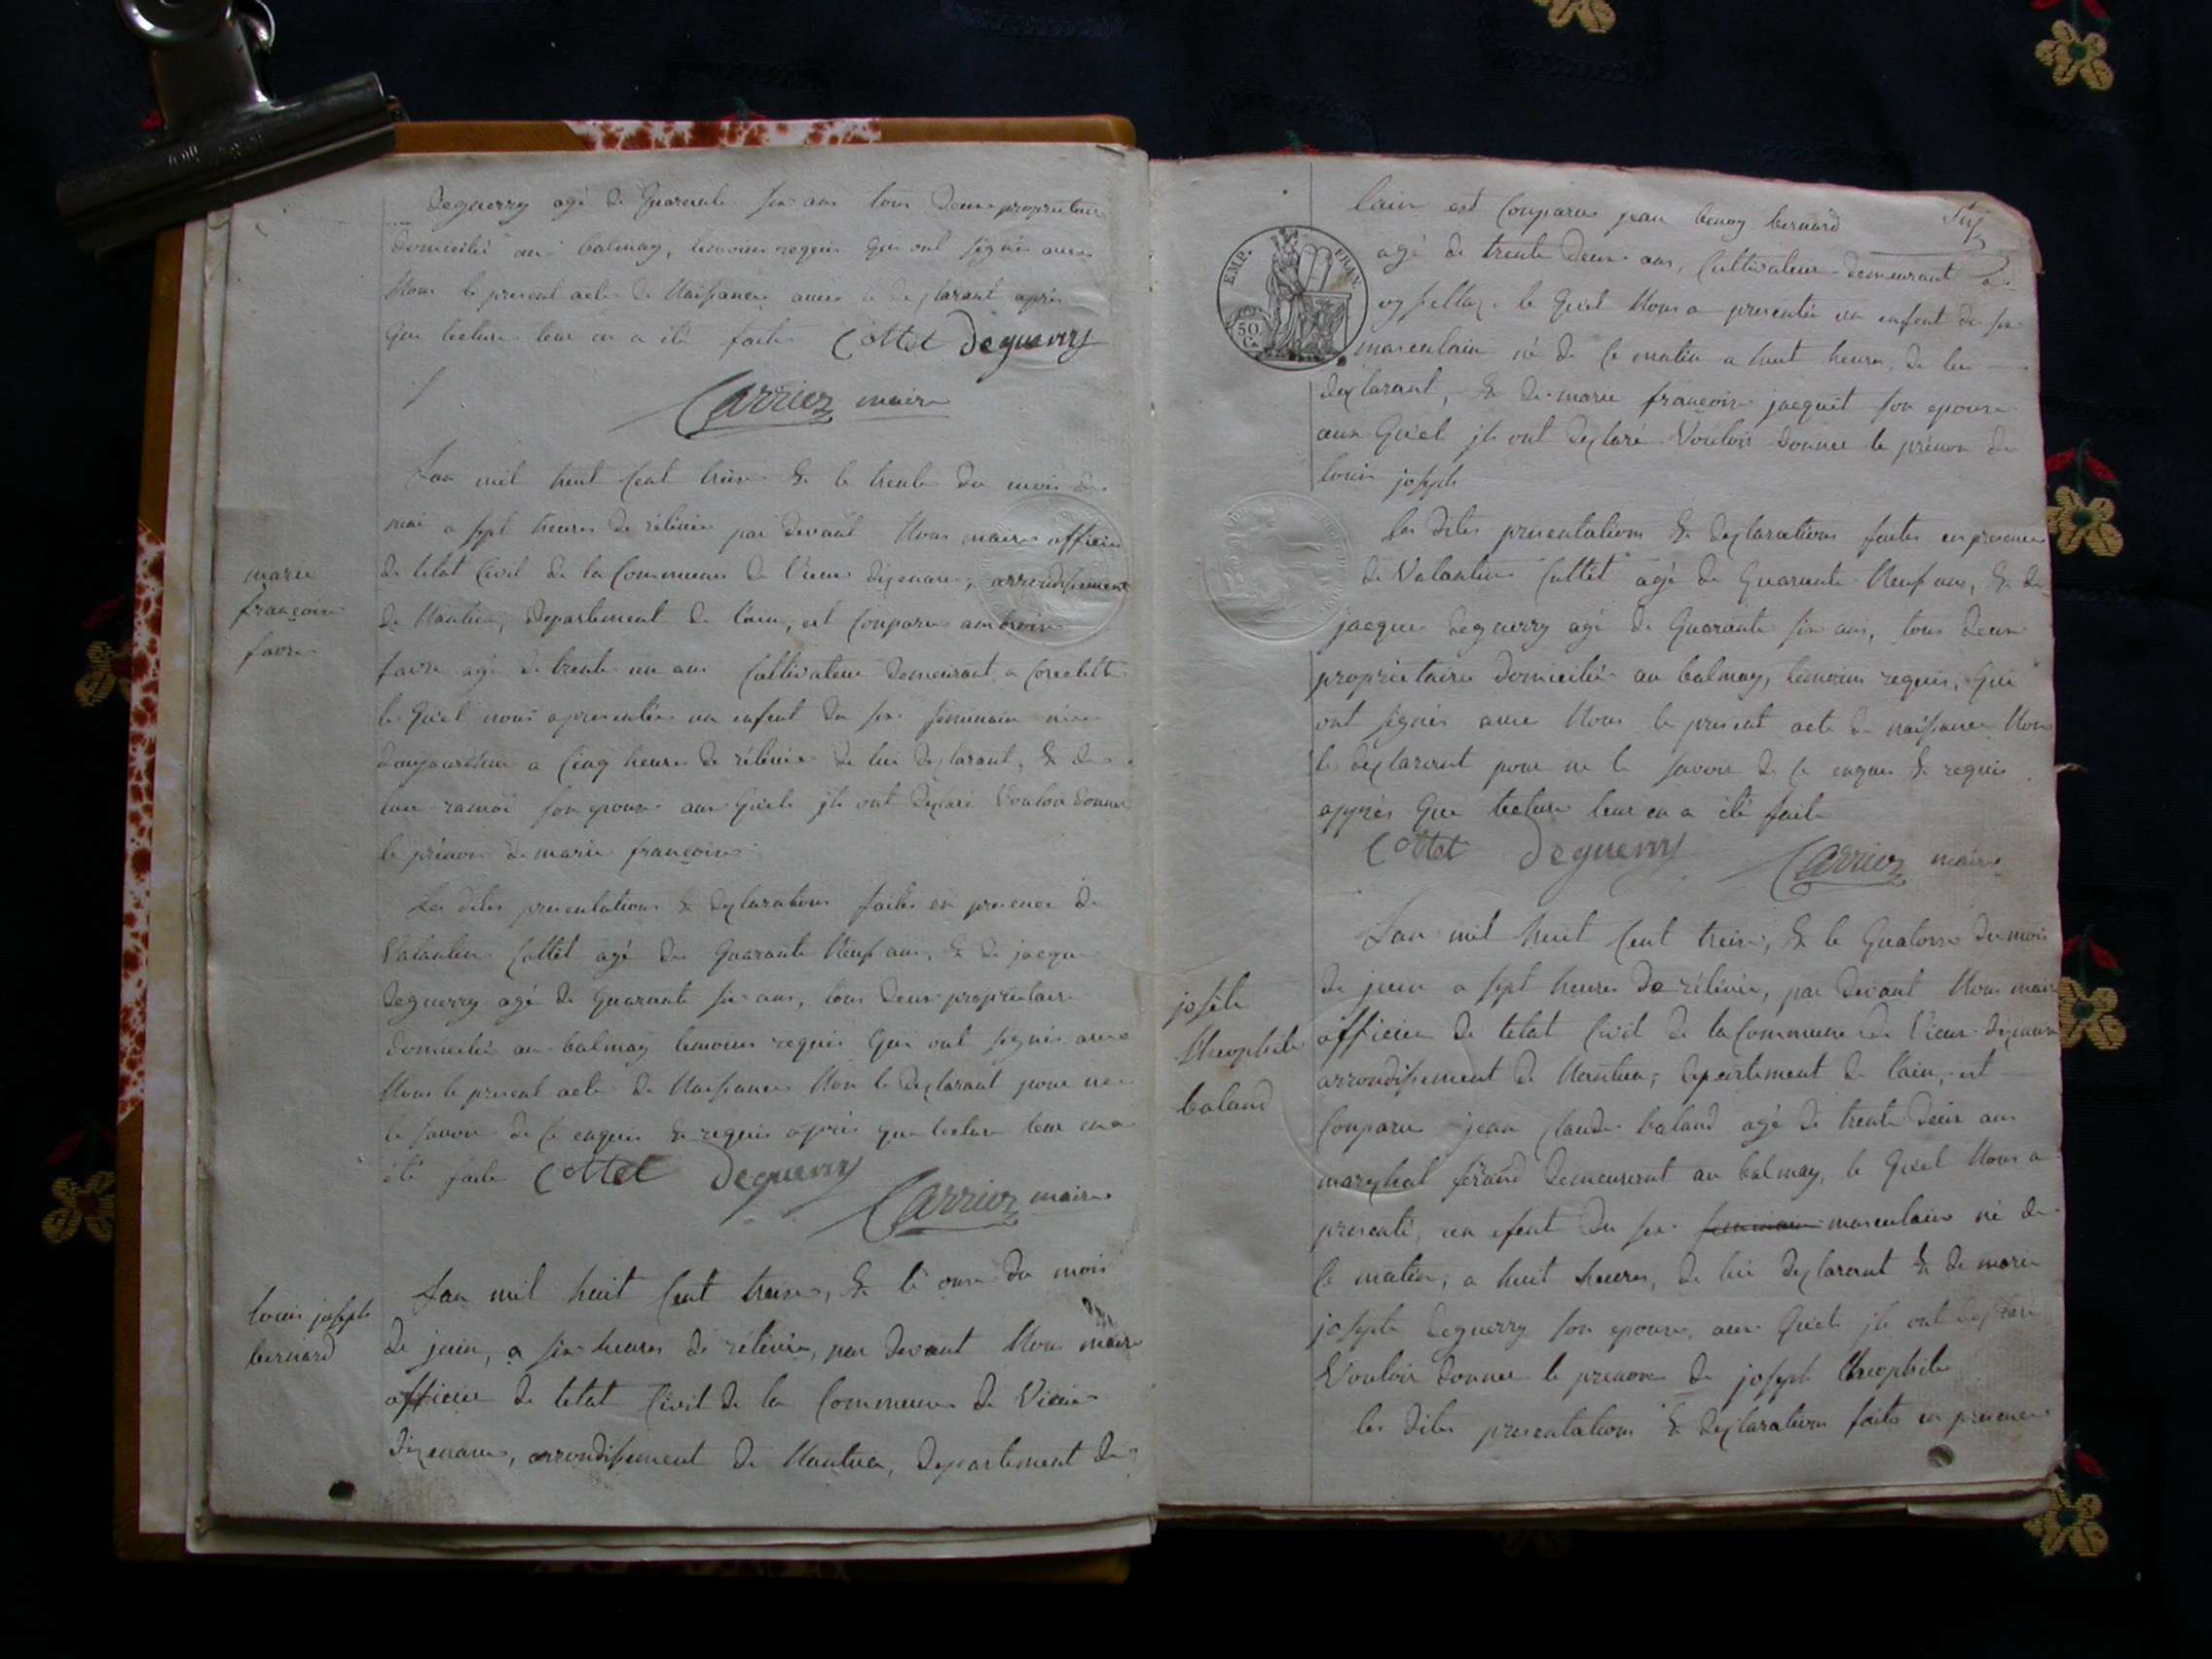 deguerry agé de Quarente six ans tous deux proprietaire
domicilié au balmay, temoins requis Qui ont signés avec
Nous le present acte de Naissance avec le declarant après
Que lecture leur en a été faite Cottet deguerry
Carrier maire
Lan mil huit cent treise & le trente du mois de
mai a sept heures de rélévée par devant Nous maire officier
de létat Civil de la Commune de Vieux dizenave, arrondissement
marie
françoise
favre
de Nantua, departement de lain, est Comparu ambroise
favre agé de trente un ans Cultivateur demeurant a
le Quel nous a presentée un enfent du sexe feminain née
daujourdhui a Cinq heures de rélévée de lui declarant, & de
son epouse aux Quels ils ont declaré Vouloir donner
le prénom de marie françoise
Les dites presentations & declarations faites en presence de
Valantin Cottet agé de Quarante Neuf ans, & de jacque
deguerry agé de Quarante six ans, tous deux propriétaire
domicilié au balmay temoins requis Qui ont signés avec
Nous le present acte de Naissance Non le declarant pour ne
le savoir de ce enquis & requis après que lecture leur en a
été faite Cottet deguerry
Carrier maire
louis joseph
bernard
Lan mil huit cent treise, & le onse du mois
de juin, a six heures de rélévée, par devant Nous maire
officier de létat Civil de la Commune de Vieux
dizenave, arrondissement de Nantua, departement de
lain est Comparu jean benoy bernard
agé de trente deux ans, Cultivateur demeurant a
EMP. FRAN.
50 C.
le Quel Nous a presentée un enfent du sexe
masculain né de ce matin a huit heures, de lui
declarant, & de marie françoise jacquit son epouse
aux Quel ils ont declaré Vouloir donner le prénom de
louis joseph
les dites presentations & declarations faites en presence
de Valantin Cottet agé de Quarante Neuf ans, & de
jacque deguerry agé de Quarante six ans, tous deux
propriétaire domicilié au balmay, temoins requis, Qui
ont signés avec Nous le present acte de naissance Non
le declarant pour ne le savoir de ce enquis & requis
après Que lecture leur en a été faite
Cottet deguerry Carrier maire
Lan mil huit Cent treise, & le Quatorse du mois
de juin a sept heures de rélévée, par devant Nous maire
joseph
theophile
baland
officier de letat Civil de la Commune de Vieux dizenave
arrondissement de Nantua, departement de lain, est
Comparu jean claude baland agé de trente deux ans
marechal ferand demeurant au balmay, le Quel Nous a
presenté, un efent du sexe feminain masculain né de
ce matin, a huit heures, de lui declarant & de marie
josephte deguerry son epouse, aux Quels ils ont declaré
Vouloir donner le prenom de joseph theophile
les dites presentations & declarations faites en presence